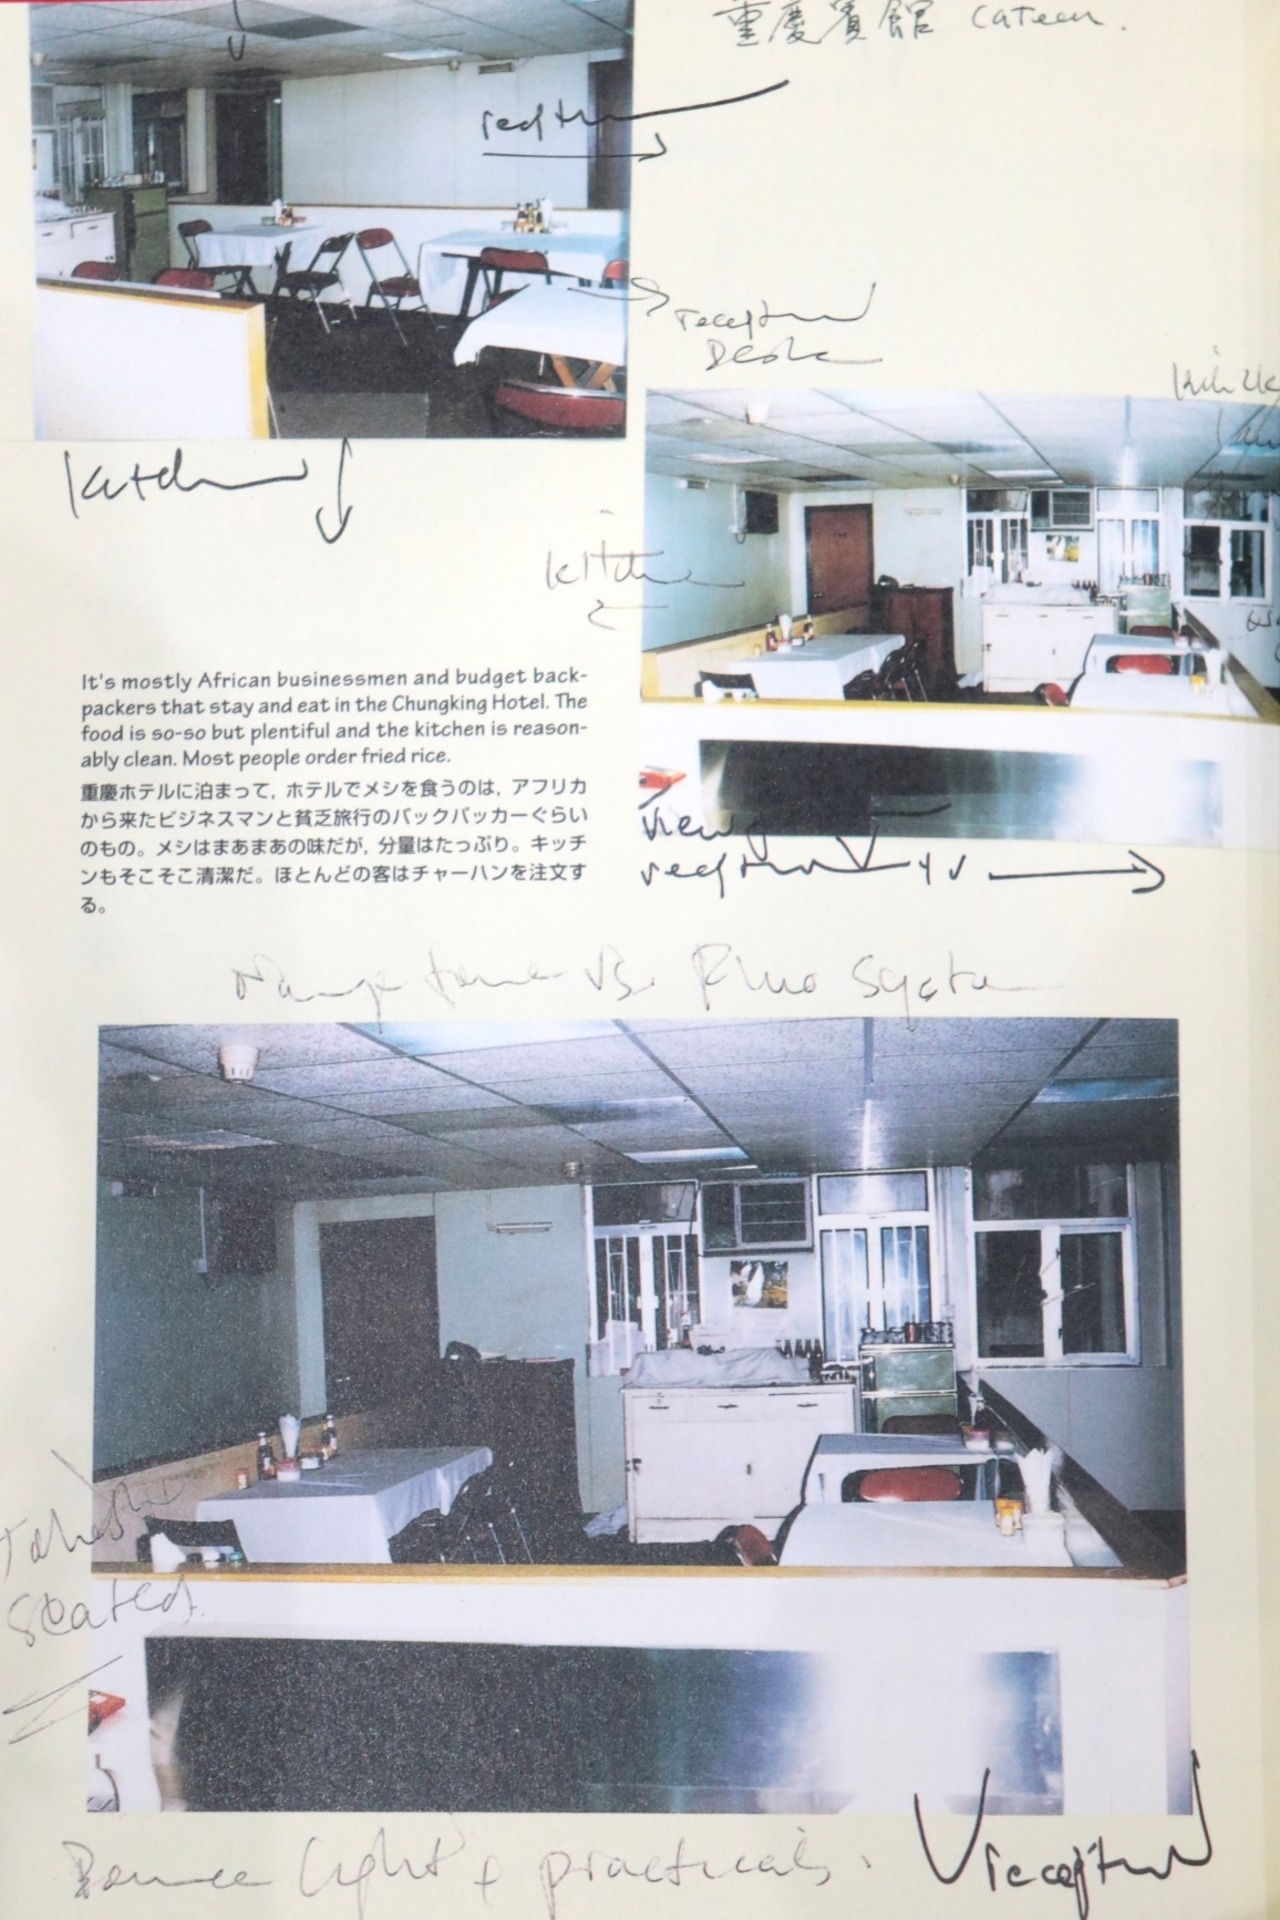 重慶賓館 Cateen.
reception
reception
Desk
Kitchen
Kitche
It's mostly African businessmen and budget back-
packers that stay and eat in the Chungking Hotel. The
food is so-so but plentiful and the kitchen is reason-
ably clean. Most people order fried rice.
重慶ホテルに泊まって，ホテルでメシを食うのは，アフリカ
から来たビジネスマンと貧乏旅行のバックパッカーぐらい
のもの。メシはまあまあの味だが，分量はたっぷり。キッチ
ンもそこそこ清潔だ。ほとんどの客はチャーハンを注文す
る。
View
reception
vs.
seated
Bounce light + practicals.
reception